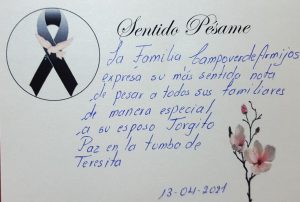 Sentido Pésame
La Familia Campoverde Armijos
expresa su más sentida nota
de pesar a todos sus familiares
de manera especial
a su esposo Jorgito
Paz en la tumba de
Teresita
13-04-2021